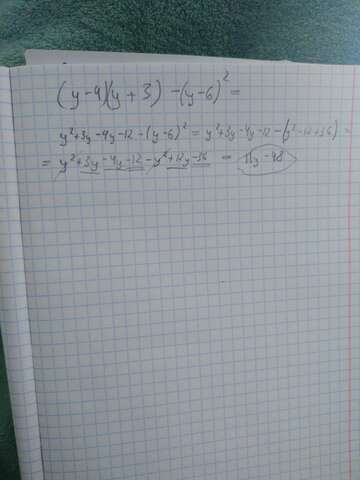 (y-4)(y+3)-(y-6)²=
y²+3y-4y-12-(y-6)²=y²+3y-4y-12-(y²-12+36)=
=y²+3y-4y-12-y²+12y-36=11y-48